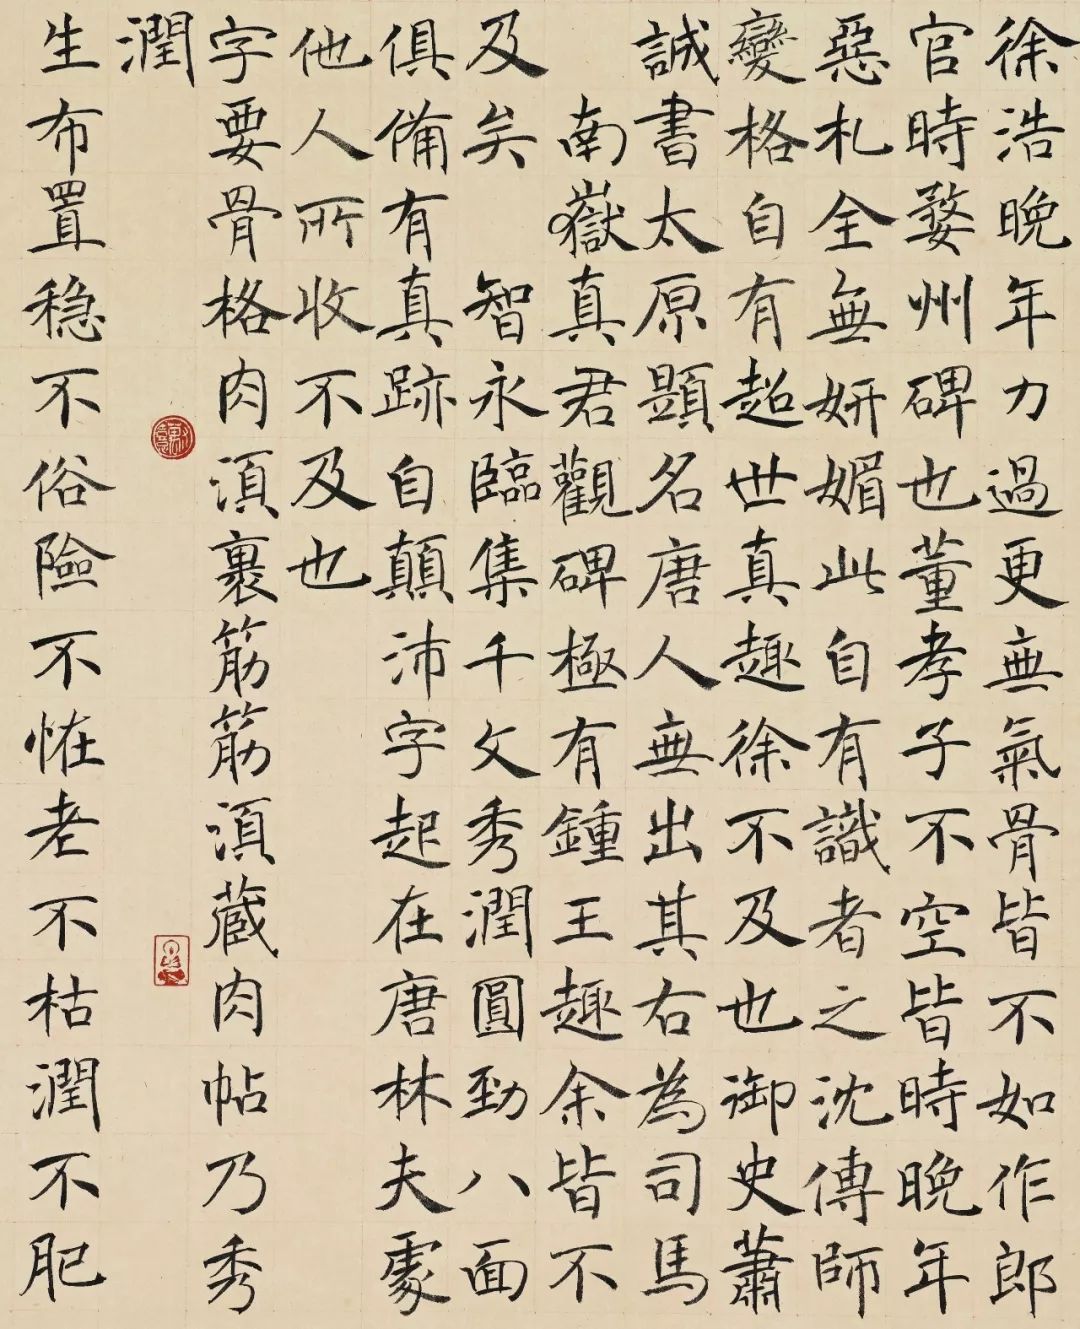 徐浩晚年力過更無氣骨皆不如作郎
官時婺州碑也董孝子不空皆時晚年
惡札全無妍媚此自有識者之沈傳師
變格自有超世真趣徐不及也御史蕭
誠書太原題名唐人無出其右為司馬
南嶽真君觀碑極有鍾王趣余皆不
及矣 智永臨集千文秀潤圓勁八面
俱備有真跡自顛沛字起在唐林夫處
他人所收不及也
字要骨格肉湏裹筋筋湏藏肉帖乃秀
潤
生布置穩不俗險不怪老不枯潤不肥